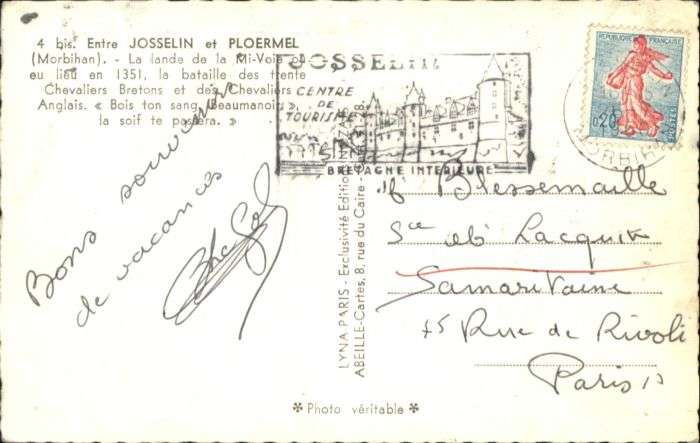 4 bis. Entre JOSSELIN et PLOERMEL
(Morbihan). - La lande de la Mi-Voie où
eu lieu en 1351, la bataille des trente
Chevaliers Bretons et des Chevaliers
Anglais. « Bois ton sang Beaumanoir,
la soif te passera. »
Bons souvenirs
de vacances
JOSSELIN
CENTRE
DE
TOURISME
BRETAGNE INTERIEURE
MORBIHAN
REPUBLIQUE FRANÇAISE
0,20
POSTES
LYNA PARIS - Exclusivité Edition
ABEILLE-Cartes, 8, rue du Caire -
Blessemaille
Sce
Samaritaine
75 Rue de Rivoli
Paris
* Photo véritable *